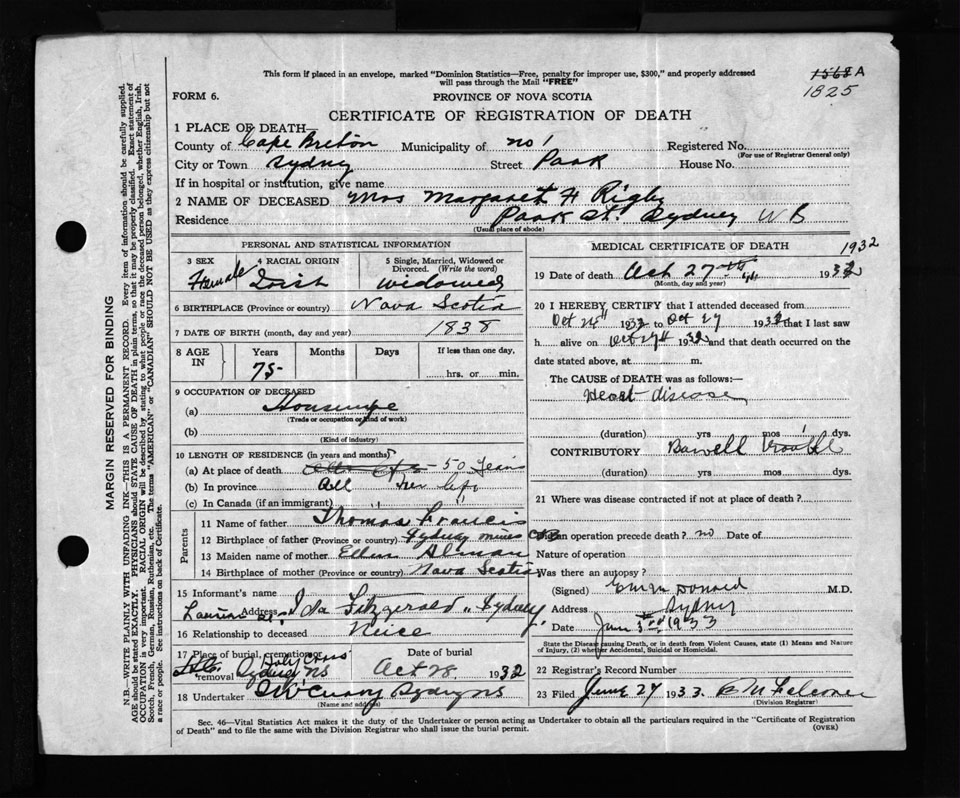 This form if placed in an envelope, marked "Dominion Statistics—Free, penalty for improper use, $300," and properly addressed
will pass through the Mail "FREE"
1568 A
1825
FORM 6.
PROVINCE OF NOVA SCOTIA
CERTIFICATE OF REGISTRATION OF DEATH
1 PLACE OF DEATH—
County of Cape Breton Municipality of no 1 Registered No.
(For use of Registrar General only)
City or Town Sydney Street Park House No.
If in hospital or institution, give name
2 NAME OF DECEASED Mrs Margaret H Rigby
Residence Park St. Sydney
(Usual place of abode)
PERSONAL AND STATISTICAL INFORMATION
3 SEX 4 RACIAL ORIGIN 5 Single, Married, Widowed or
Divorced. (Write the word)
Female Irish widowed
6 BIRTHPLACE (Province or country) Nova Scotia
7 DATE OF BIRTH (month, day and year) 1838
8 AGE IN Years Months Days If less than one day,
75 hrs. or min.
9 OCCUPATION OF DECEASED
(a) Housewife
(Trade or occupation or kind of work)
(b)
(Kind of industry)
10 LENGTH OF RESIDENCE (in years and months)
(a) At place of death 50 Years
(b) In province All her life
(c) In Canada (if an immigrant)
Parents
11 Name of father Thomas Francis
12 Birthplace of father (Province or country) Sydney mines CB
13 Maiden name of mother Ellen
14 Birthplace of mother (Province or country) Nova Scotia
15 Informant's name
Address Ida Fitzgerald Sydney
16 Relationship to deceased Neice
17 Place of burial, cremation or Date of burial
removal Holy Cross
Sydney NS Oct 28 1932
18 Undertaker Sydney NS
(Name and address)
MEDICAL CERTIFICATE OF DEATH
1932
19 Date of death Oct 27th 1932
(Month, day and year)
20 I HEREBY CERTIFY that I attended deceased from
Oct 1932 to Oct 27 1932 that I last saw
h alive on Oct 27 1932 and that death occurred on the
date stated above, at m.
The CAUSE of DEATH was as follows:—
Heart disease
(duration) yrs mos dys.
CONTRIBUTORY Bowell trouble
(duration) yrs mos dys.
21 Where was disease contracted if not at place of death?
an operation precede death? no Date of
Nature of operation
Was there an autopsy?
(Signed) M.D.
Address Sydney
Date 1933
State the Disease causing Death, or in death from Violent Causes, state (1) Means and Nature
of Injury, (2) whether Accidental, Suicidal or Homicidal.
22 Registrar's Record Number
23 Filed June 27 1933. E M Falconer
(Division Registrar)
Sec. 46—Vital Statistics Act makes it the duty of the Undertaker or person acting as Undertaker to obtain all the particulars required in the "Certificate of Registration
of Death" and to file the same with the Division Registrar who shall issue the burial permit.
(OVER)
MARGIN RESERVED FOR BINDING
N.B.—WRITE PLAINLY WITH UNFADING INK—THIS IS A PERMANENT RECORD. Every item of information should be carefully supplied.
AGE should be stated EXACTLY. PHYSICIANS should STATE CAUSE OF DEATH in plain terms, so that it may be properly classified. Exact statement of
OCCUPATION is very important. RACIAL ORIGIN will be described by stating to what people or race the deceased person belonged, whether English, Irish,
Scotch, French, German, Russian, Ruthenian, etc. The terms "AMERICAN" or "CANADIAN" SHOULD NOT BE USED as they express citizenship but not
a race or people. See instructions on back of Certificate.